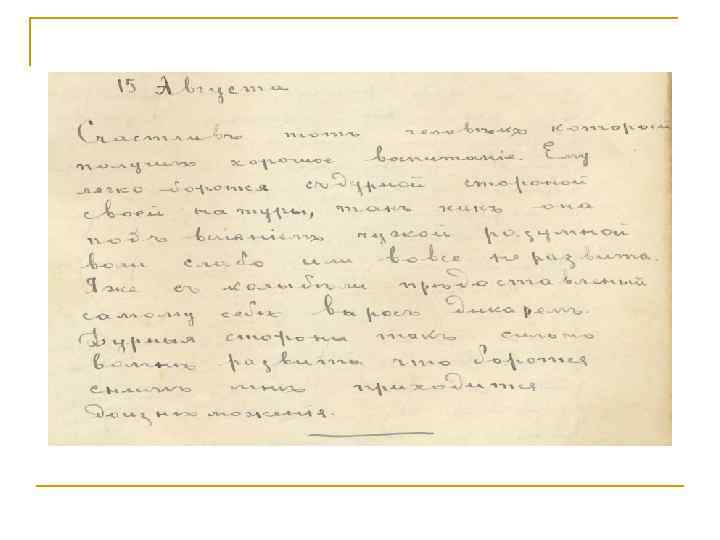 15 Августа
Счастливъ тотъ человѣкъ который
получилъ хорошое воспитаніе. Ему
легко боротся съ дурной стороной
своей натуры, такъ какъ она
подъ вліяніемъ чужой разумной
воли слабо или вовсе не развита.
Я же съ колыбѣли прѣдоставленый
самому себѣ выросъ дикаремъ.
Дурныя стороны такъ сильно
во мнѣ развиты что боротся
с ними мнѣ приходится
до изнѣможенія.